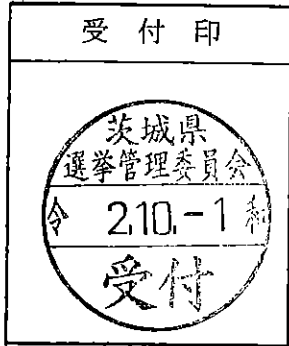 受付印
茨城県
選挙管理委員会
令 2.10.-1 和
受付